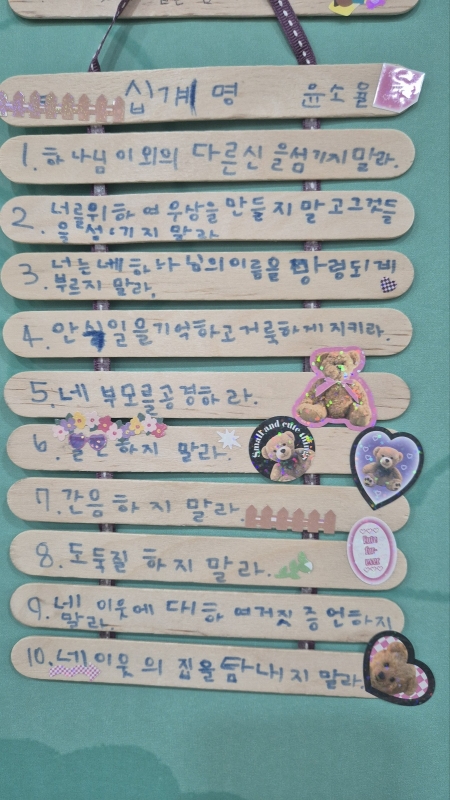 십계명 윤소율
1. 하나님 이외의 다른신을섬기지말라.
2. 너를위하여우상을만들지말고그것들
을섬기지 말라
3. 너는네하나님의이름을망령되게
부르지 말라.
4. 안식일을기억하고거룩하게지키라.
5. 네 부모를공경하라.
6. 하지 말라.
Small and cute things
7. 간음하지말라.
8. 도둑질 하지말라.
9. 네 이웃에 대하여거짓증언하지
말라.
10. 네이웃의 집을탐내지말라.